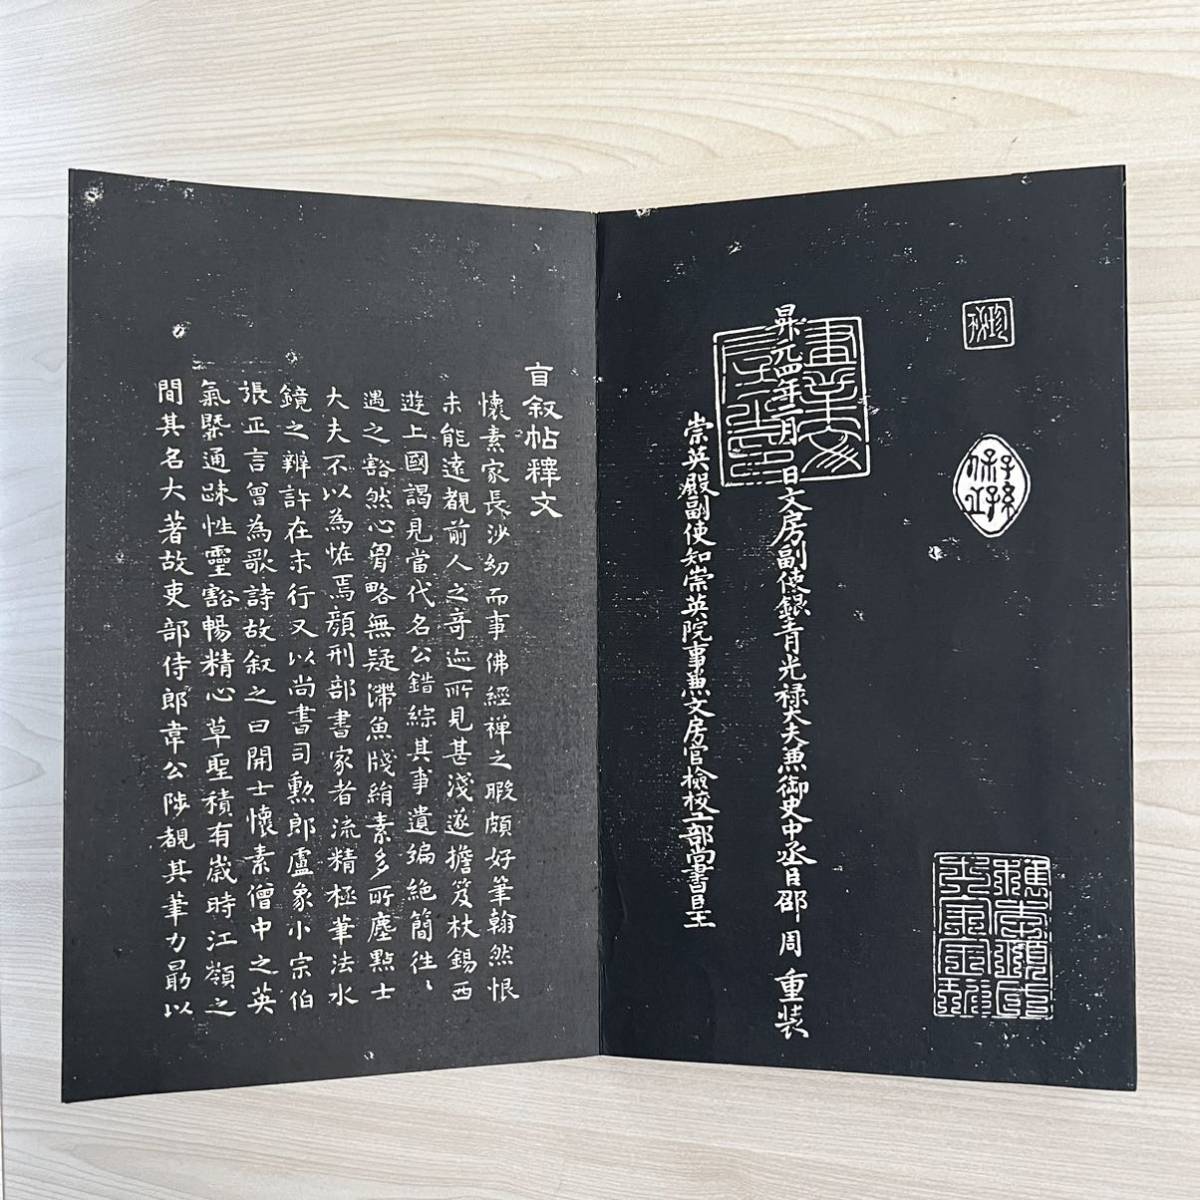 昇元四年二月 日文房副使銀青光禄大夫兼御史中丞臣邵 周 重裝
崇英殿副使知崇英院事兼文房官檢校工部尚書臣王
自叙帖釋文
懷素家長沙幼而事佛經禅之暇頗好筆翰然恨
未能遠覩前人之竒迹所見甚淺遂擔笈杖錫西
遊上國謁見當代名公錯綜其事遺編絕簡往〻
遇之豁然心胷略無疑滯魚牋絹素多所塵點士
大夫不以為恠焉顔刑部書家者流精極筆法水
鏡之辨許在末行又以尚書司勲郎盧象小宗伯
張正言曾為歌詩故叙之曰開士懷素僧中之英
氣槩通疎性靈豁暢精心草聖積有歲時江嶺之
間其名大著故吏部侍郎韋公陟覩其筆力勗以